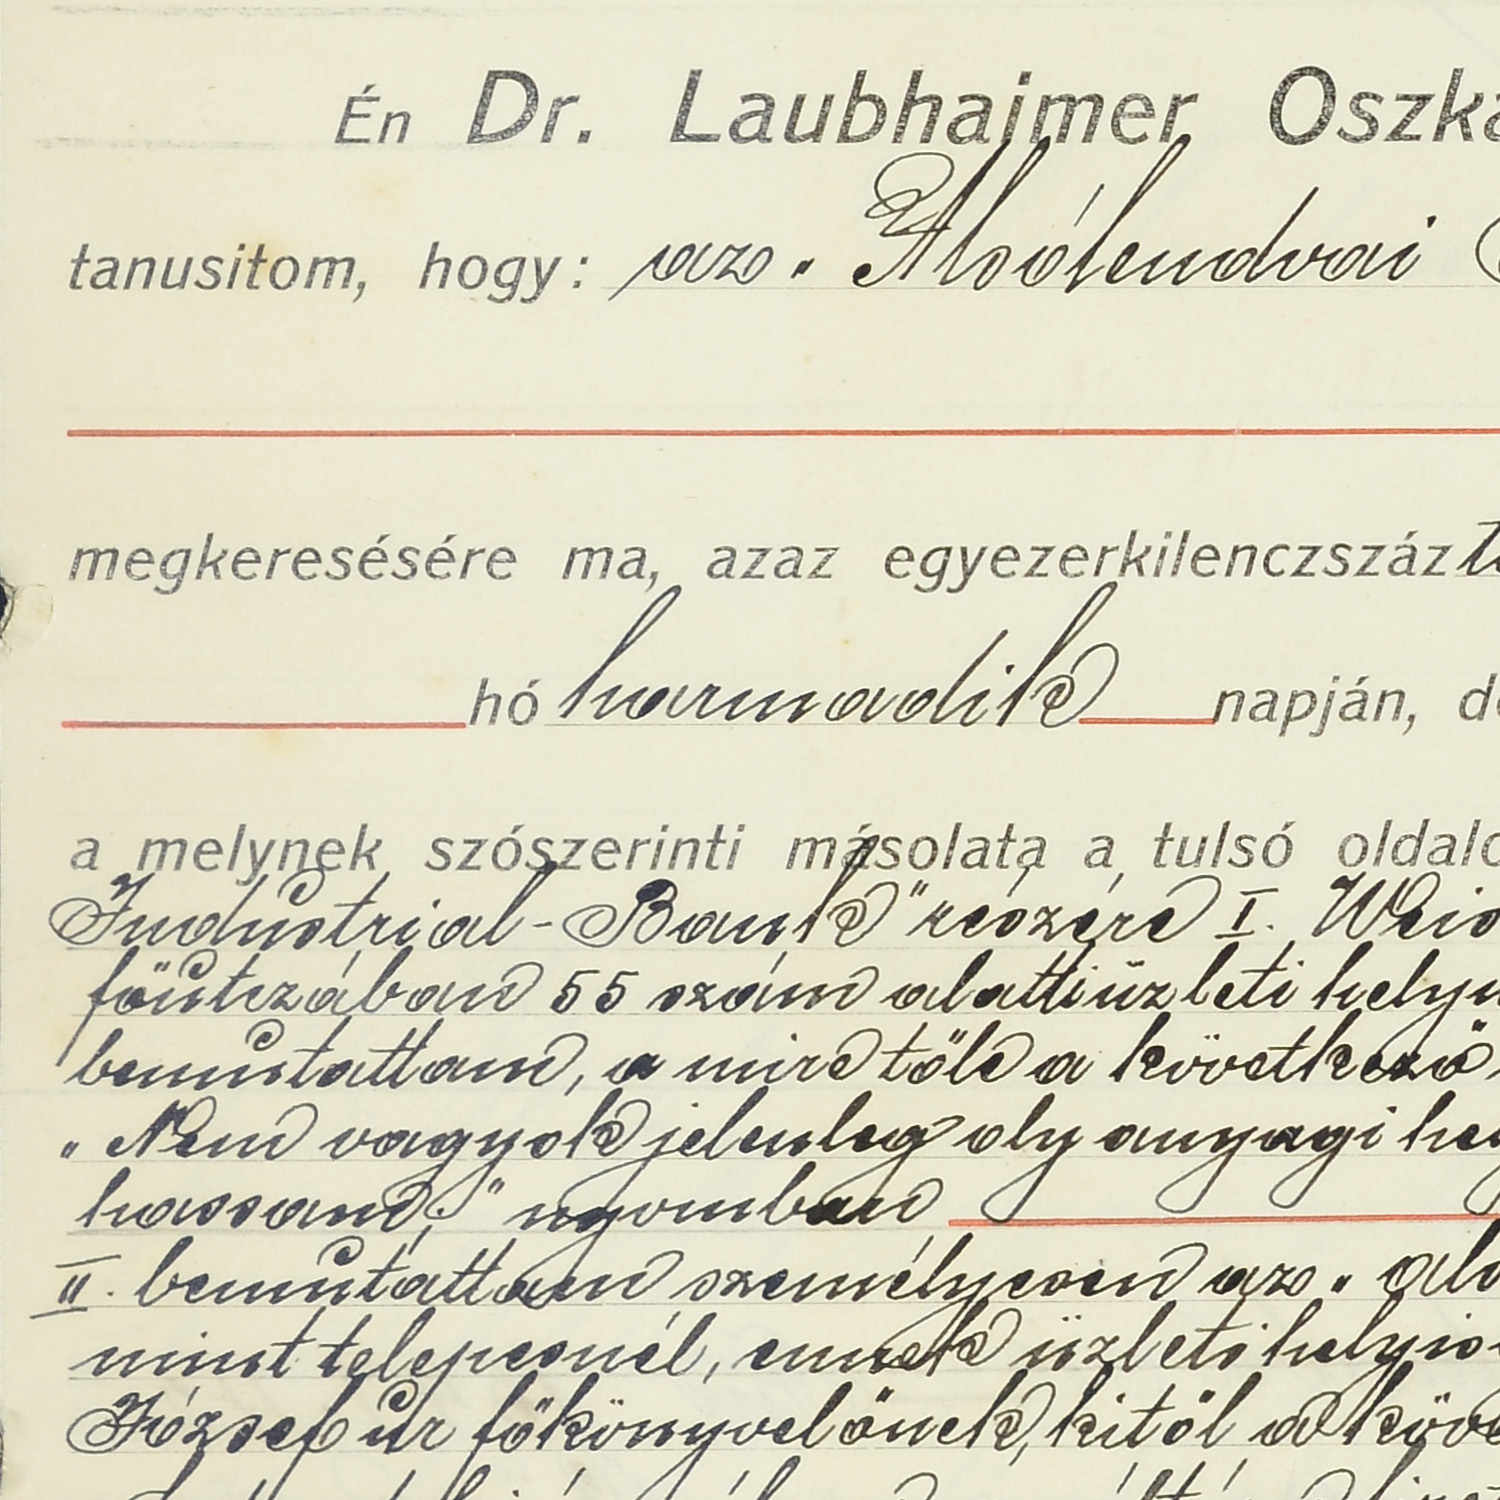 Én Dr. Laubhaimer Oszká
tanusitom, hogy: az „Alsólendvai
megkeresésére ma, azaz egyezerkilenczszáz
hó harmadik napján, dé
a melynek szószerinti másolata a tulsó oldalo
Industrial-Bank" részére I. Weis
főutczában 55 szám alatti üzleti helyi
bemutattam, a mire tőle a következő
„Nem vagyok jelenleg oly anyagi hely
hassam;" nyomban
II. bemutattam személyesen az „als
mint telepesnél, ennek üzleti helyis
József úr főkönyvelőnek, kitől a köve